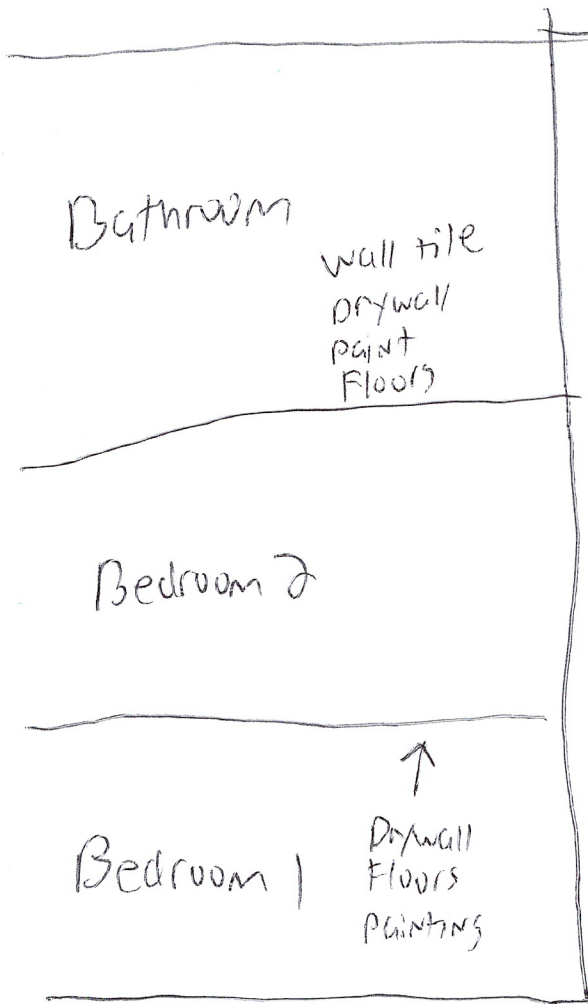 Bathroom
Wall tile
Drywall
paint
Floors
Bedroom 2
Bedroom 1
Drywall
Floors
painting